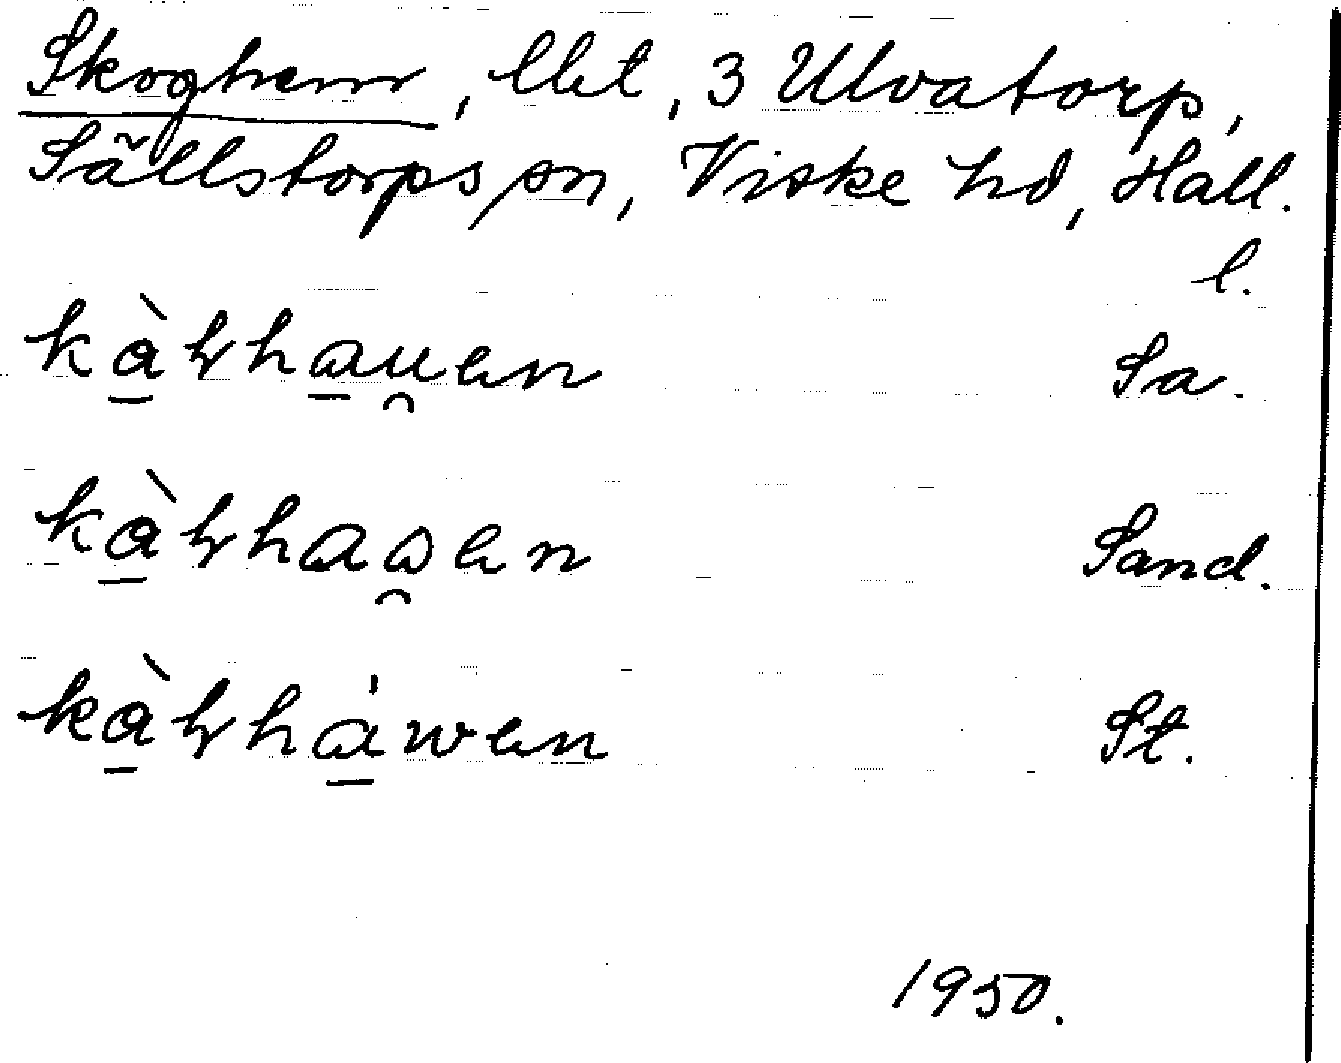 Skoghem, llet, 3 Ulvatorp,
Sällstorps sn, Viske hd, Hall.
l.
kàrhau̯en Sa.
kàrhao̯en Sand.
kàrháwen St.
1950.